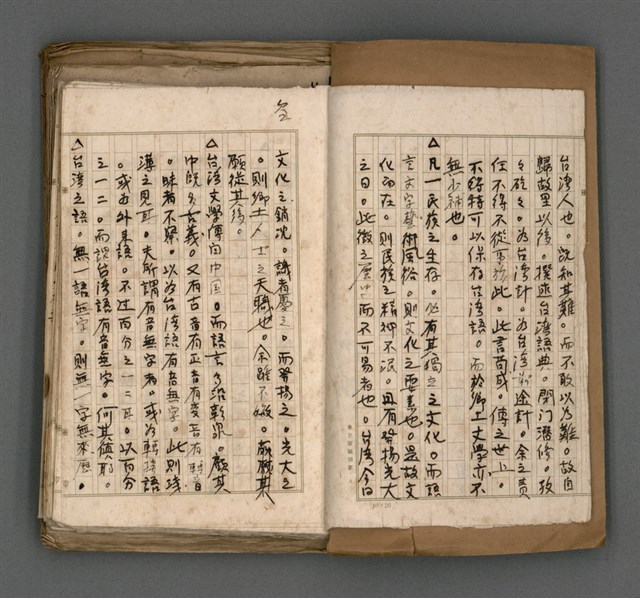 台湾人也。既知其難。而不敢以為難。故自
歸故里以後。撰述台湾語典。閉门潛修。孜
々矻々。為台湾計。為台湾前途計。余之責
任不得不從事於此。此書苟成。傳之世上。
不特可以保存台湾語。而於鄉土文學亦不
無少補也。
△凡一民族之生存。必有其獨之之文化。而語
言文字藝術風俗。則文化之要素也。是故文
化而在。則民族之精神不泯。且有發揚光大
之日。此徵之歷史而不可易者也。台湾今日
文化之銷沈。識者憂之。而發揚之。光大之
。則鄉土人士之天職也。余雖不敏。願從其
願從其後。
△台湾文學傳自中国。而語言多沿彰泉。顧其
中既多古義。又有古音有正音有変音有轉音
。昧者不察。以為台湾語有音無字。此則淺
薄之見耳。夫所謂有音無字者。或為轉接語
。或為外来語。不过百分之一二耳。以百分
之一二。而謂台湾語有音無字。何其傎耶。
△台湾之語。無一語無字。則無一字無來歷。